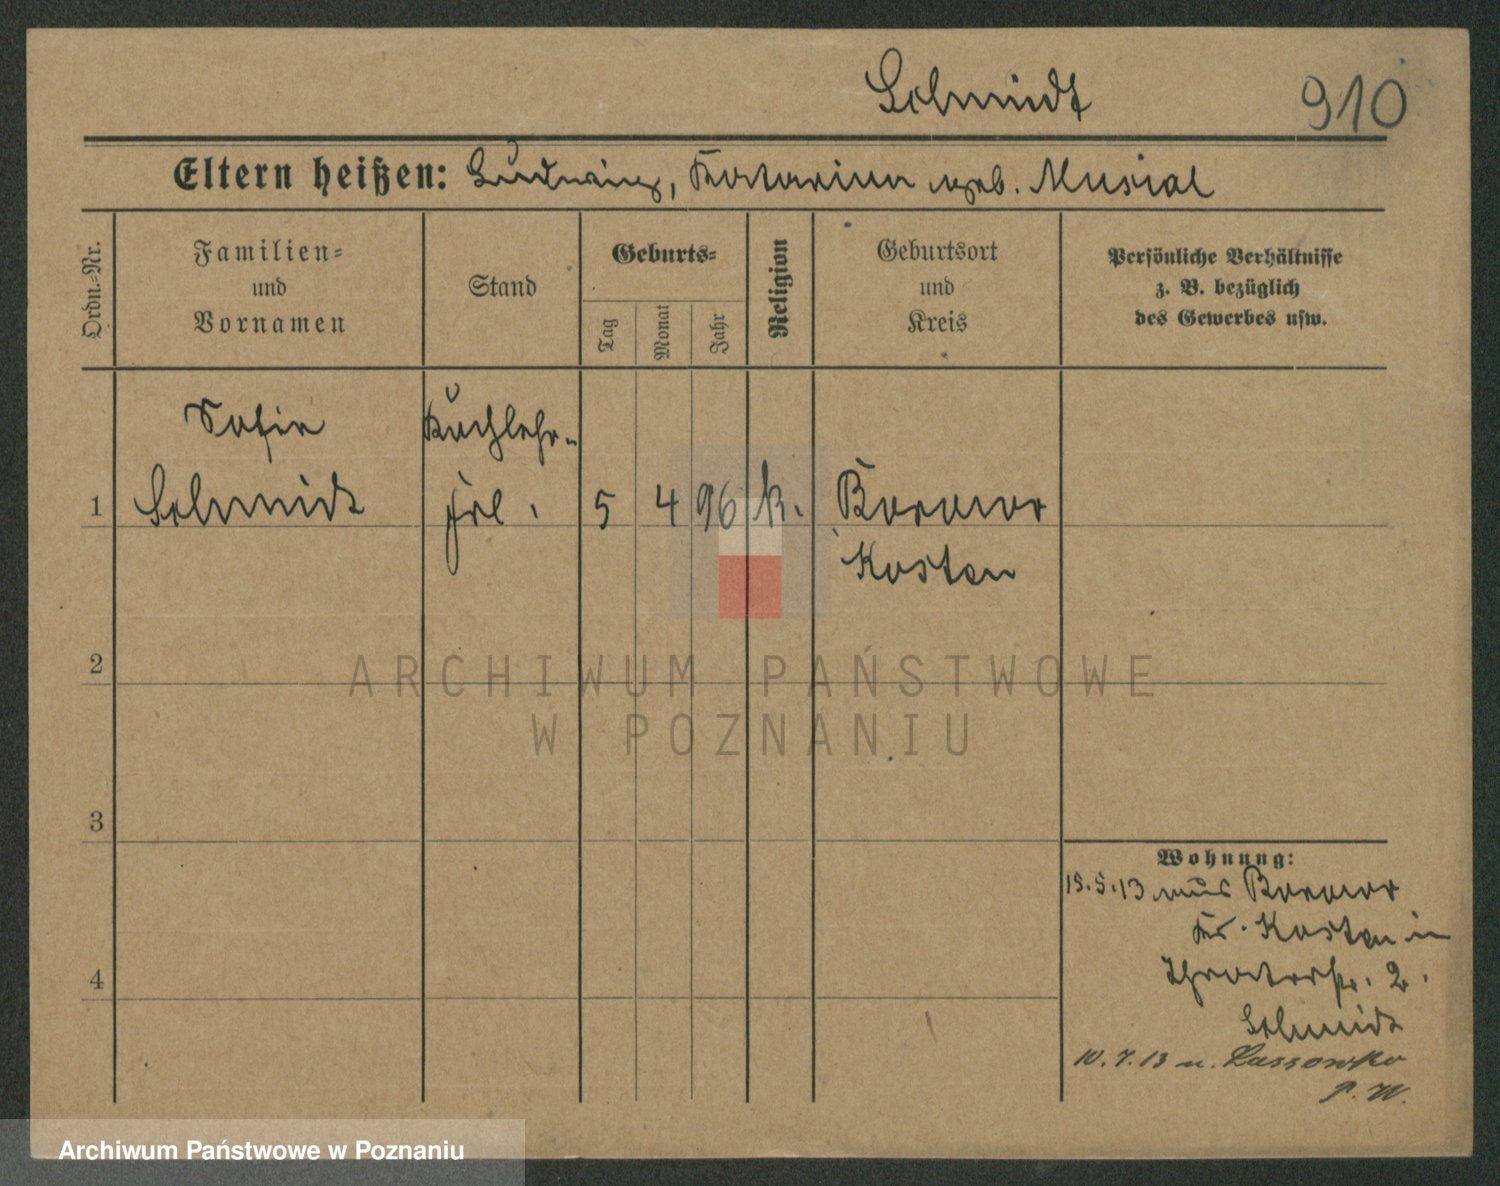 Schmidt 910
Eltern heißen: Ludwig, Katarina geb. Musial
Ordn.-Nr.
Familien-
und
Vornamen
Stand
Geburts-
Tag
Monat
Jahr
Religion
Geburtsort
und
Kreis
Persönliche Verhältnisse
z. B. bezüglich
des Gewerbes usw.
Sofie Kochlehr-
1 Schmidt frl. 5 4 96 k. Borowo
Kosten
2
ARCHIWUM PAŃSTWOWE
W POZNANIU
3
Wohnung:
15.5.13 aus Borowo
Kr. Kosten in
2.
Schmidt
10.7.13 n. Lassowko
P. W.
4
Archiwum Państwowe w Poznaniu